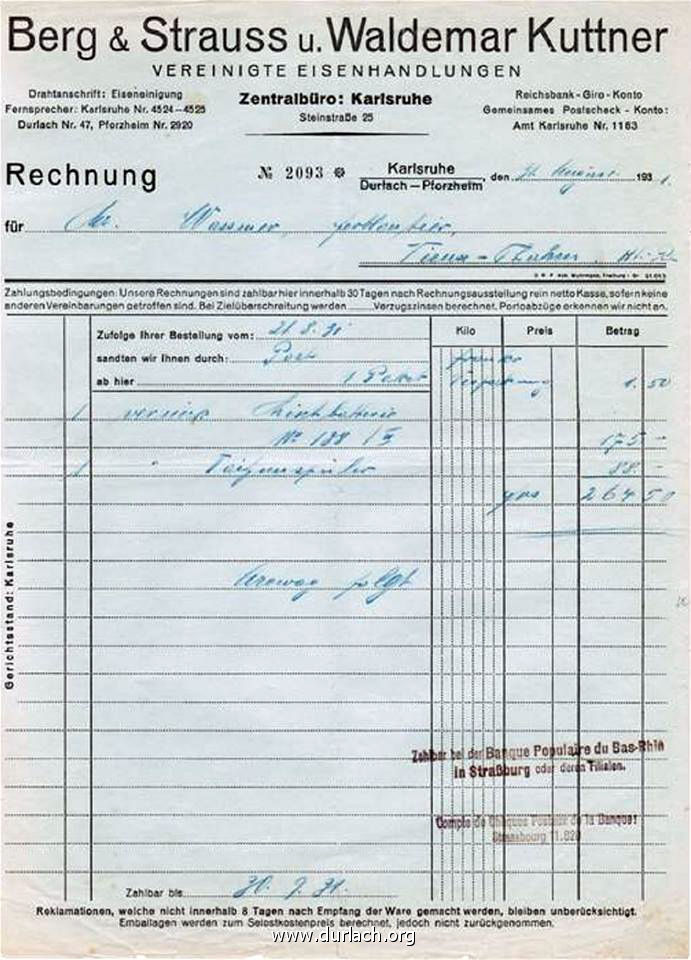 Berg & Strauss u. Waldemar Kuttner
VEREINIGTE EISENHANDLUNGEN
Drahtanschrift: Eiseneinigung
Fernsprecher: Karlsruhe Nr. 4524—4525
Durlach Nr. 47, Pforzheim Nr. 2920
Zentralbüro: Karlsruhe
Steinstraße 25
Reichsbank-Giro-Konto
Gemeinsames Postscheck-Konto:
Amt Karlsruhe Nr. 1163
Rechnung
№ 2093
Karlsruhe
Durlach—Pforzheim, den August 1931.
für
Wassmer,
Zahlungsbedingungen: Unsere Rechnungen sind zahlbar hier innerhalb 30 Tagen nach Rechnungsausstellung rein netto Kasse, sofern keine
anderen Vereinbarungen getroffen sind. Bei Zielüberschreitung werden Verzugszinsen berechnet. Portoabzüge erkennen wir nicht an.
Zufolge Ihrer Bestellung vom: 21.8.31
Kilo Preis Betrag
sandten wir Ihnen durch: Post
ab hier 1 Paket Verpackung 1.50
1
No 188 / 175 -
1 " 88 -
264 50
folgt
Gerichtsstand: Karlsruhe
Zahlbar bei der Banque Populaire du Bas-Rhin
in Straßburg oder deren Filialen.
Compte de Chèques Postaux de la Banque:
Strasbourg 11.820
Zahlbar bis 30. 9. 31.
Reklamationen, welche nicht innerhalb 8 Tagen nach Empfang der Ware gemacht werden, bleiben unberücksichtigt.
Emballagen werden zum Selbstkostenpreis berechnet, jedoch nicht zurückgenommen.
www.durlach.org